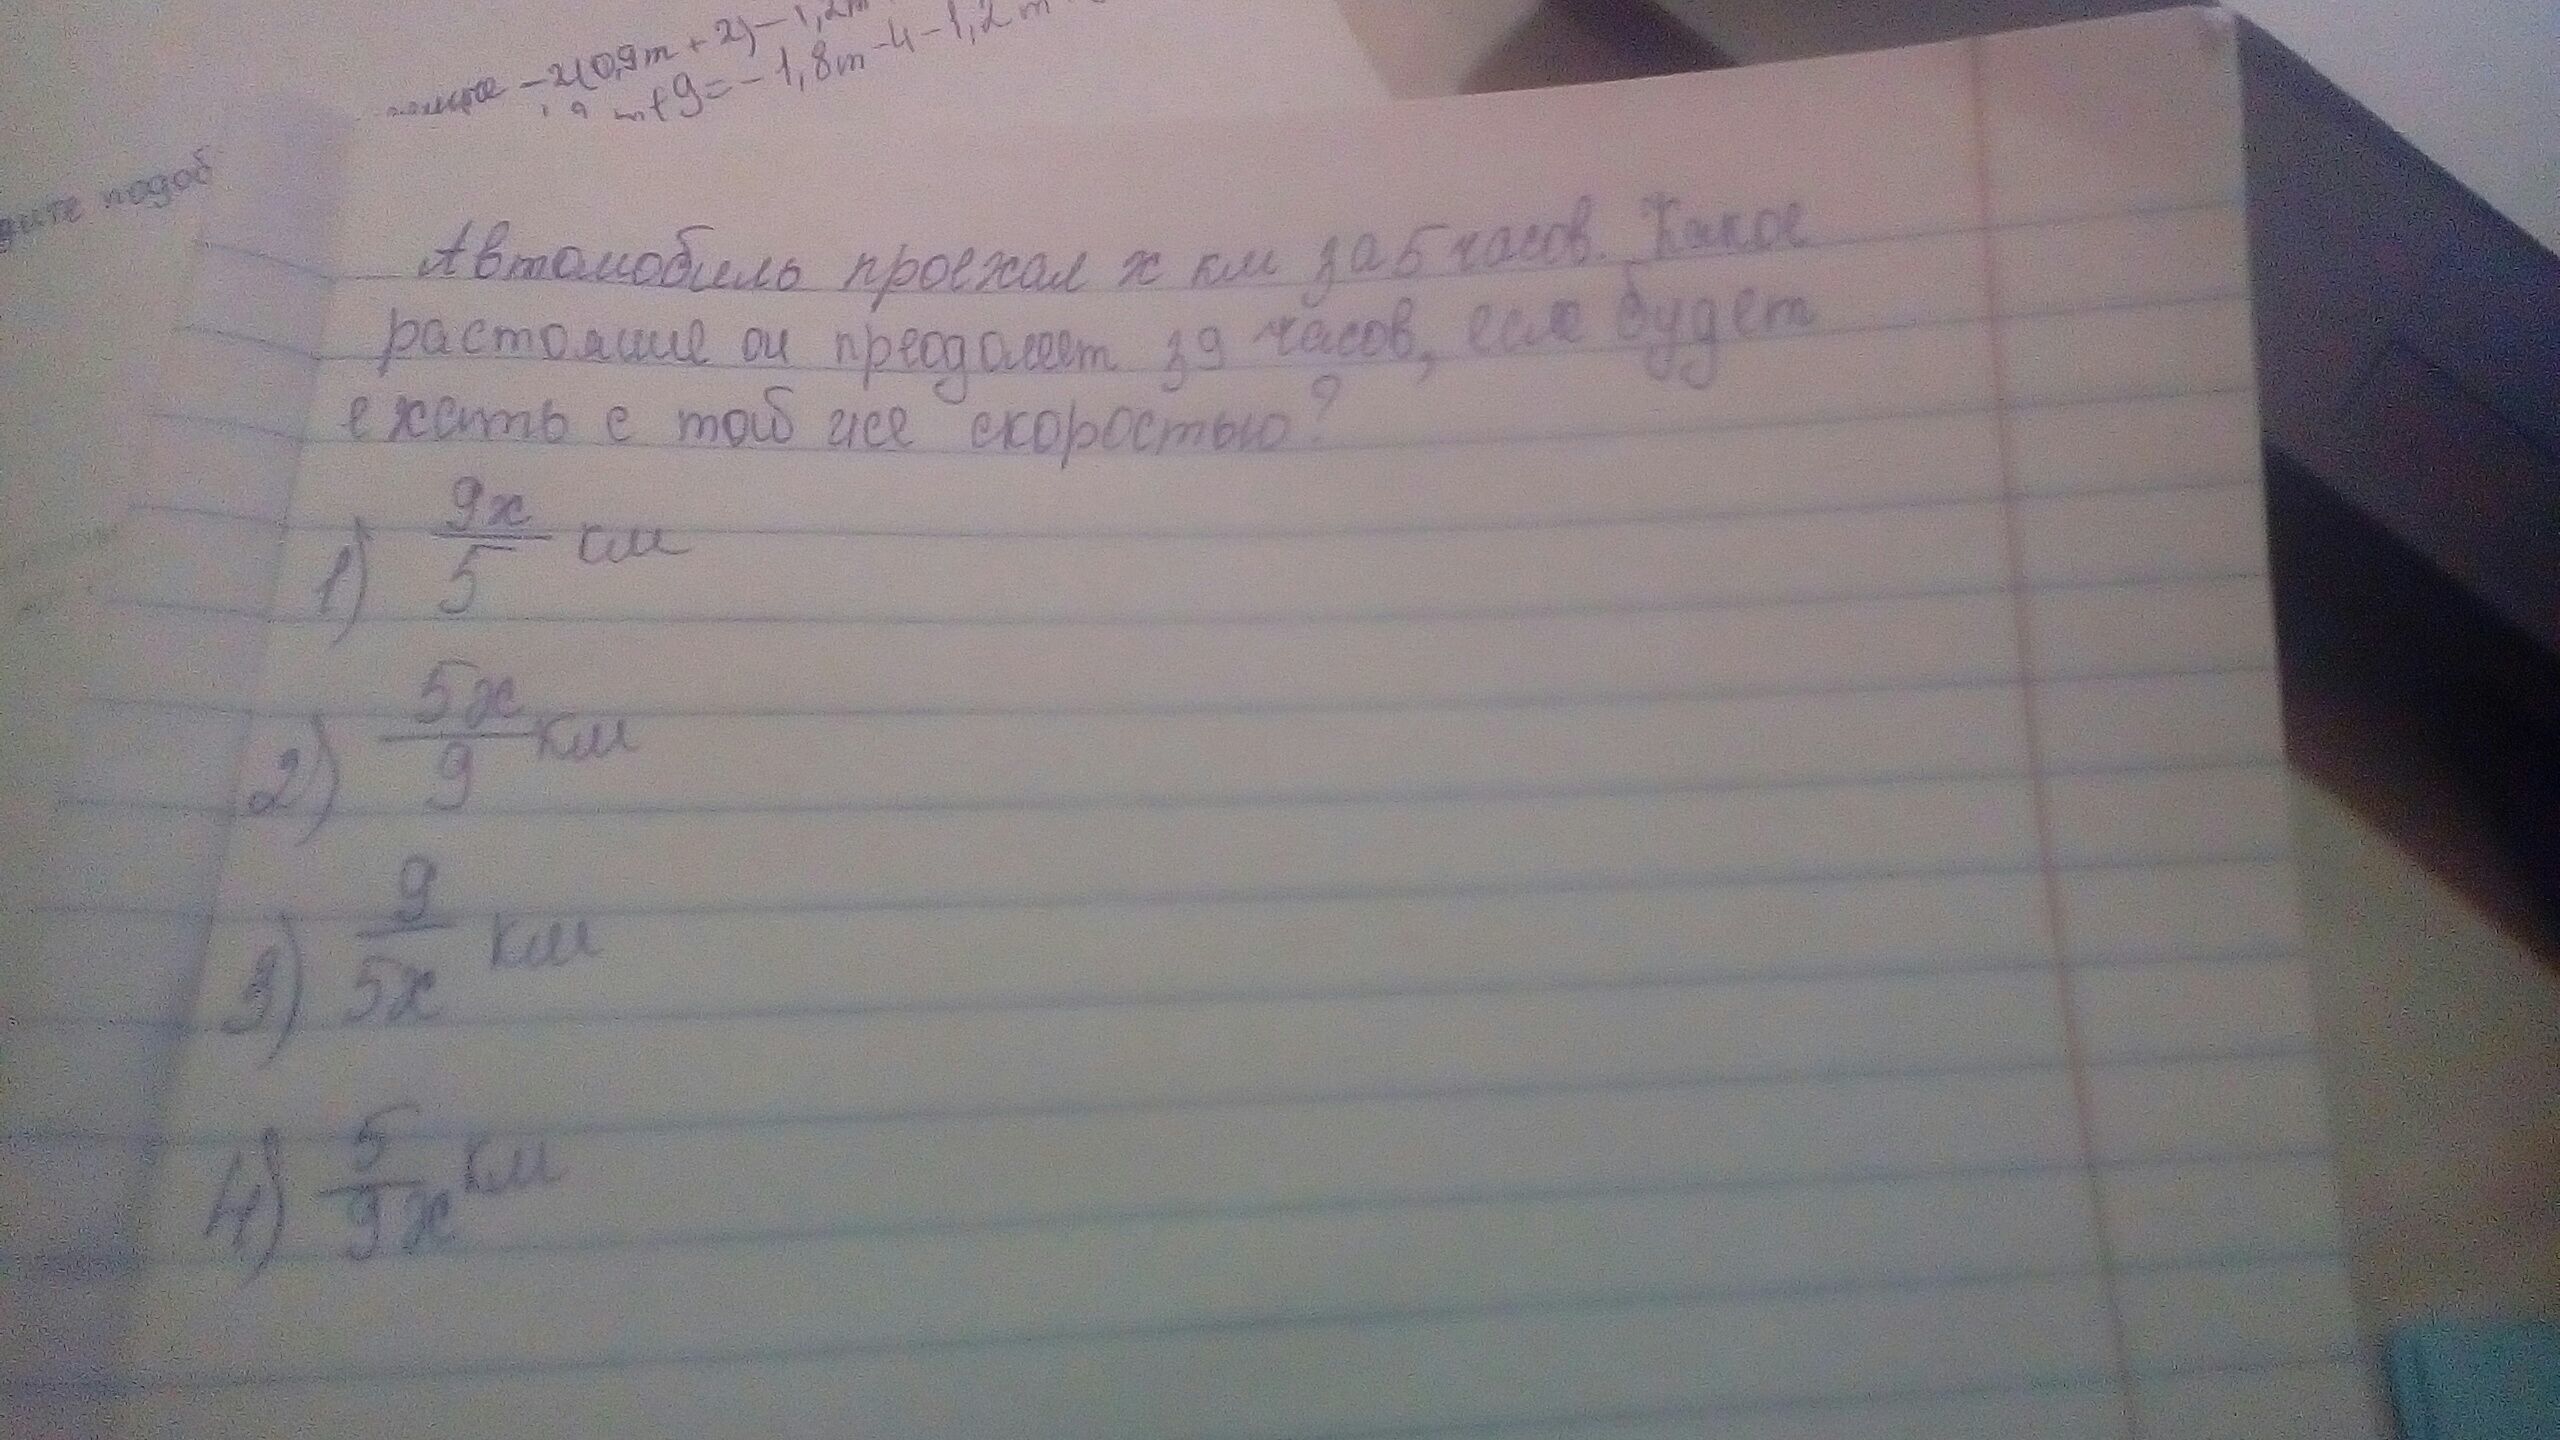 -2(0,9m+2)-1,2m
m+9=-1,8m-4-1,2m
подоб
Автомобиль проехал x км за 5 часов. Какое
растояние он преодолеет з 9 часов, если будет
ехать с той же скоростью?
1) 9x/5 км
2) 5x/9 км
3) 9/5x км
4) 5/9x км